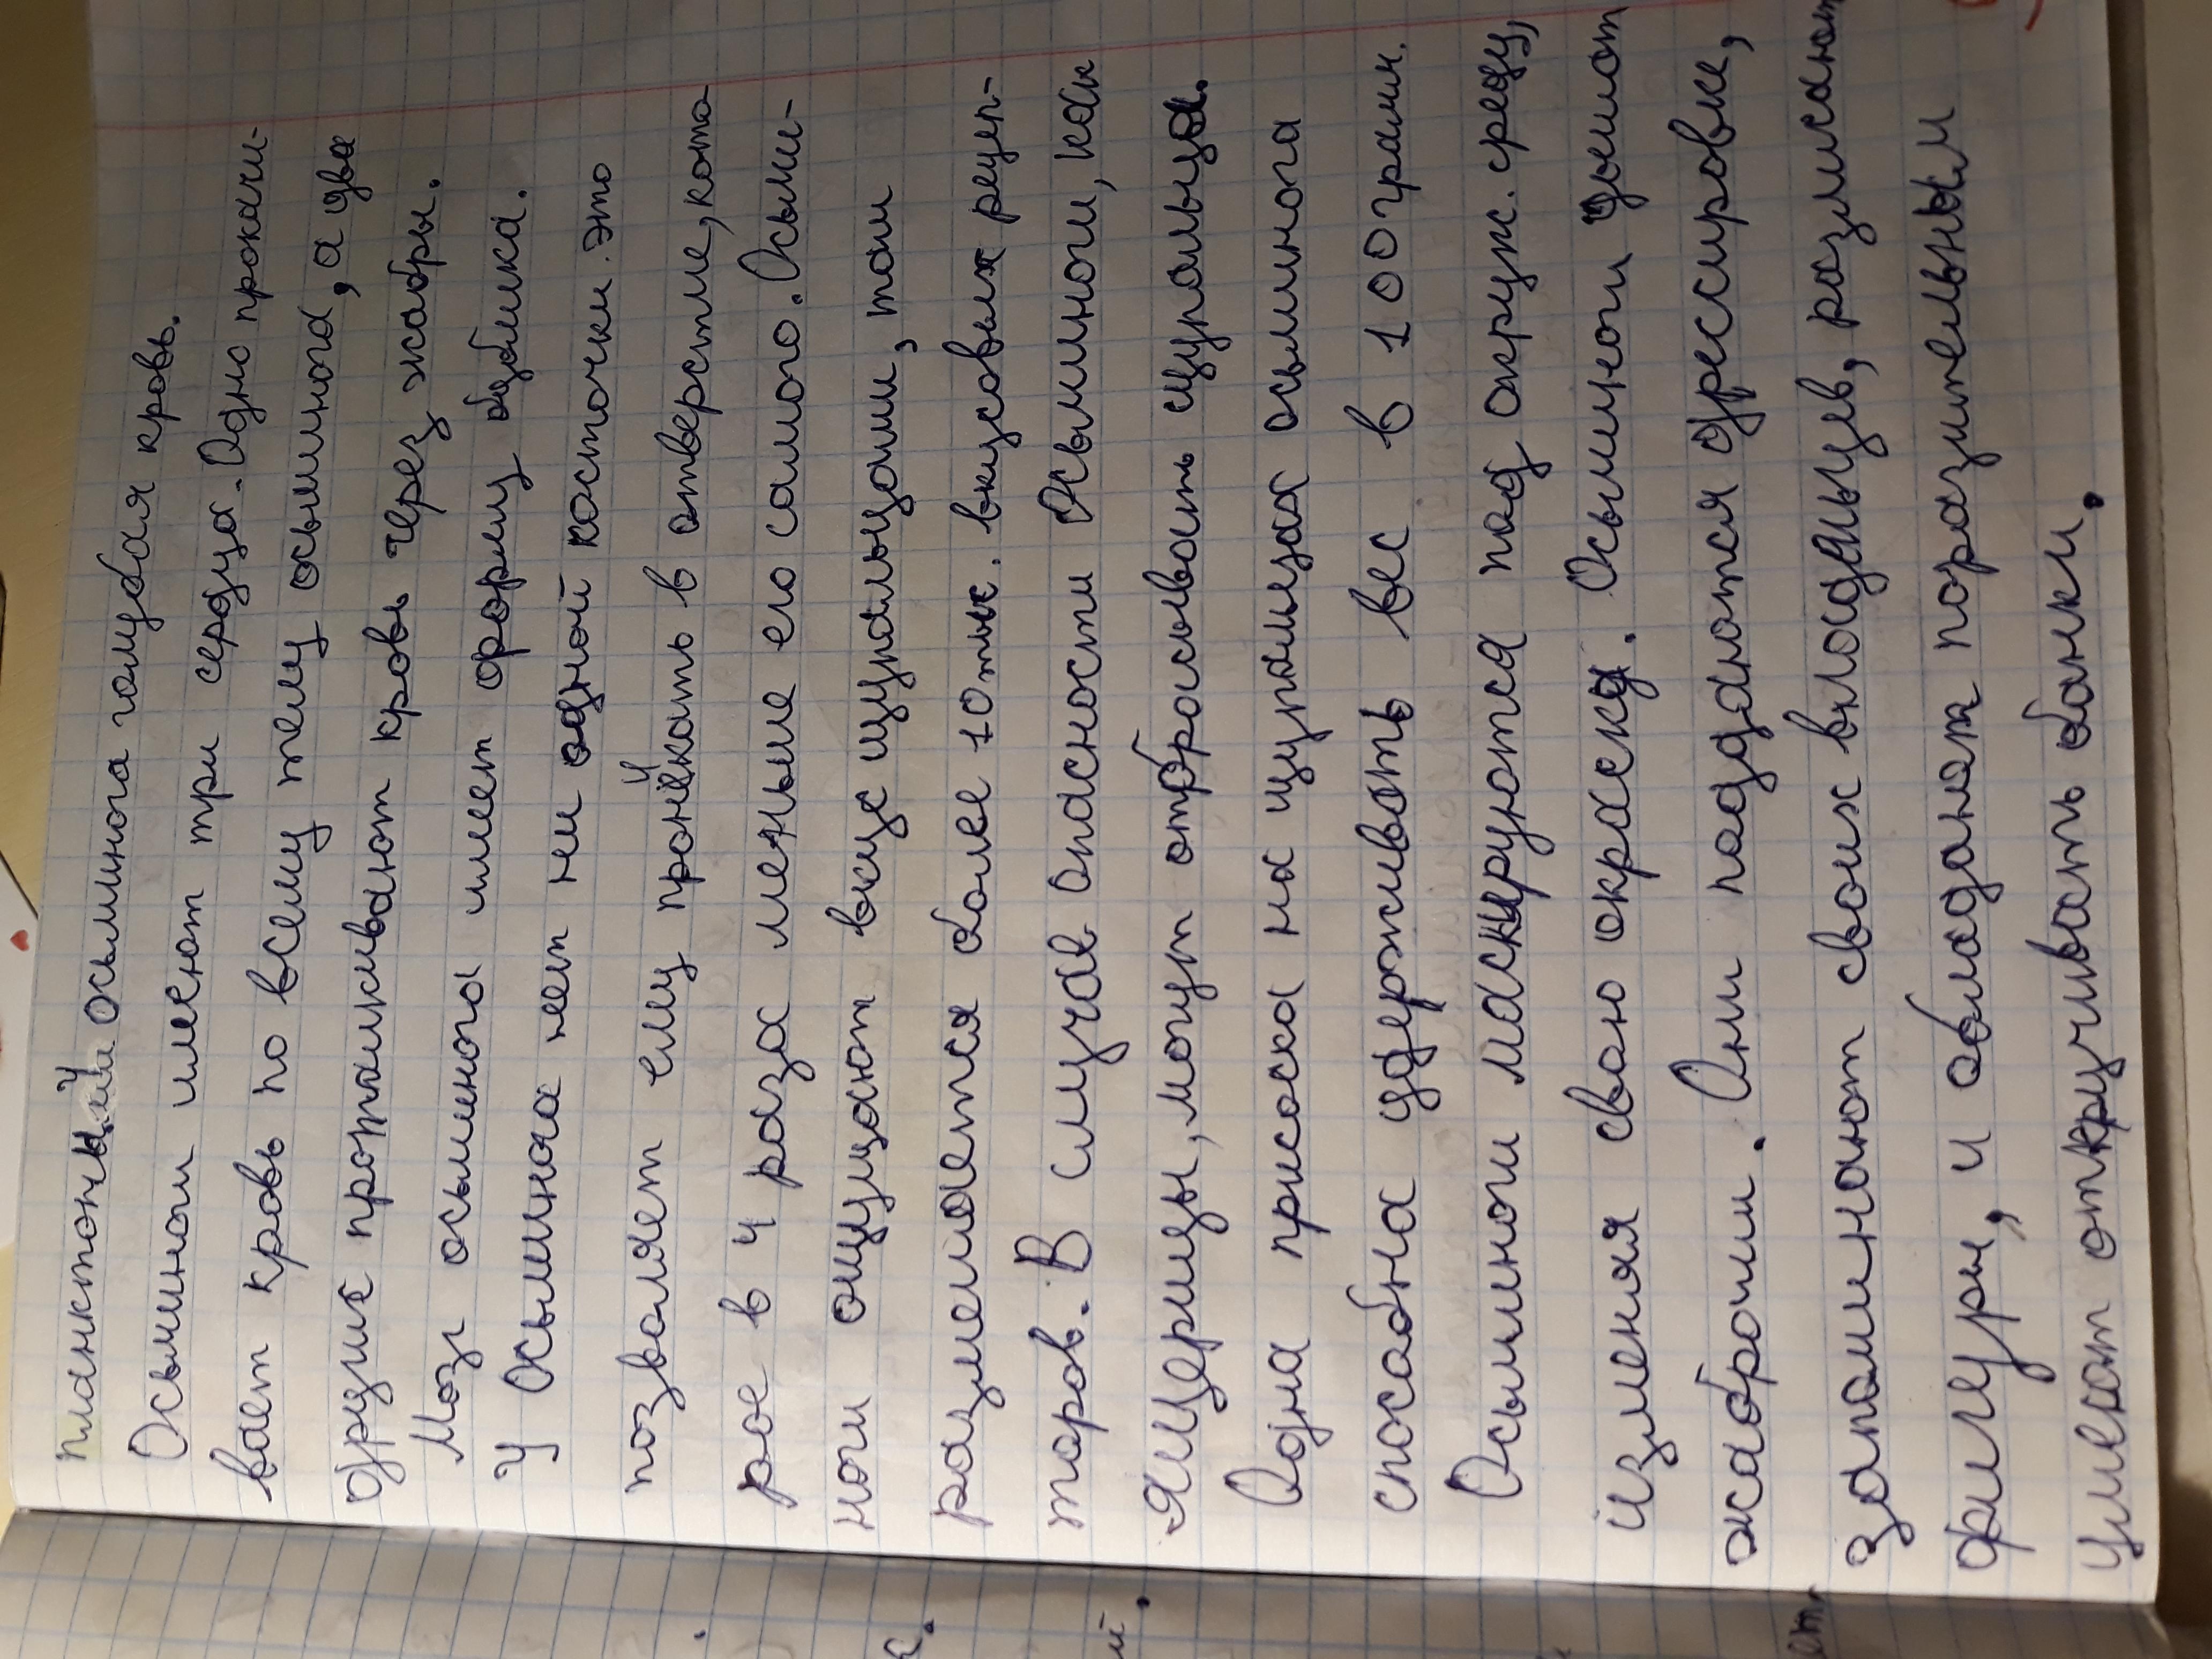 планктоны. У осьминога голубая кровь.
Осьминоги имеют три сердца. Одно прокачи-
вает кровь по всему телу осьминога, а два
другие проталкивают кровь через жабры.
Мозг осьминога имеет форму бублика.
У осьминога нет ни одной косточки. это
позволяет ему проникать в отверстие, кото
рое в 4 раза меньше его самого. Осьми-
ноги ощущают вкус щупальцами, там
размещается более 10 тыс. вкусовых рецеп-
торов. В случае опасности осьминоги, как
ящерицы, могут отбрасывать щупальца.
Одна присоска на щупальцах осьминога
способна удерживать вес в 100 грамм.
Осьминоги маскируются под окруж. среду,
изменяя свою окраску. Осьминоги дышат
жабрами. Они поддаются дрессировке,
запоминают своих владельцев, различают
фигуры, и обладают поразительным
умеют откручивать банки.